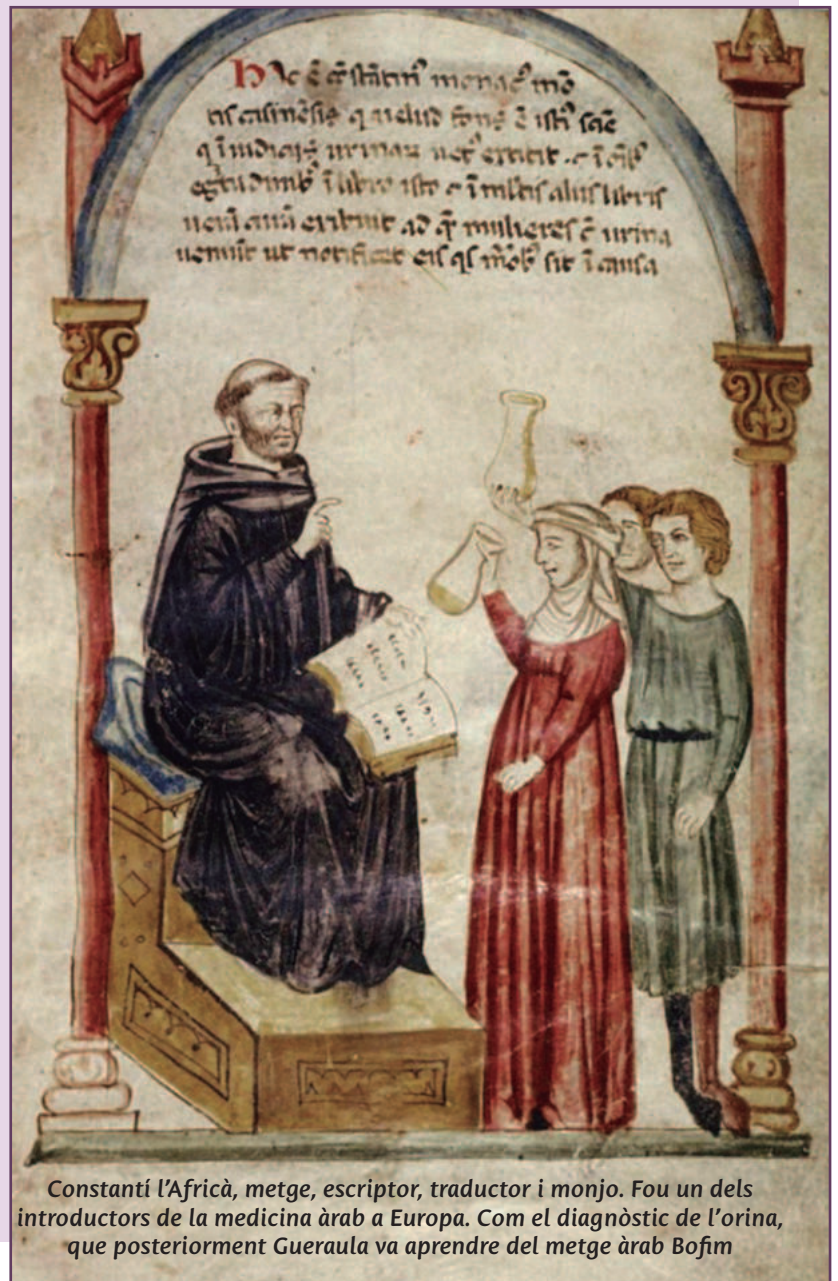 Hic ē cōstātin' monac' mō
tis casinēsis q uelud fons ē isti' sciē
q ī iudiciis urinar ī oīb'
egritudinib' ī libro isto ⁊ ī mltis aliis libris
uerā curā exibuit ad qē mulieres c̄ urina
ueniūt ut notificet eis qs morb' sit ī causa
Constantí l'Africà, metge, escriptor, traductor i monjo. Fou un dels
introductors de la medicina àrab a Europa. Com el diagnòstic de l'orina,
que posteriorment Gueraula va aprendre del metge àrab Bofim